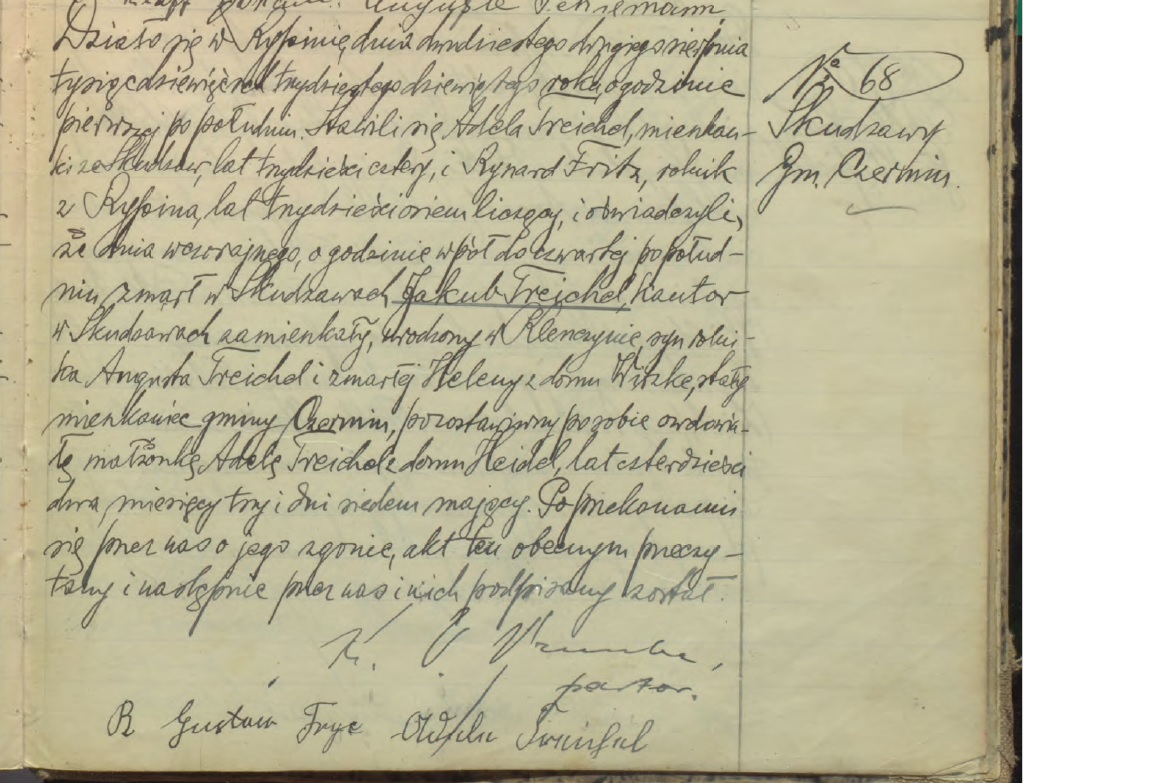 Auguste
Działo się w Rypinie, dnia dwudziestego drugiego sierpnia
tysiąc dziewięćset trzydziestego dziewiątego roku, o godzinie
pierwszej po południu. Stawili się Adela Treichel, mieszkan-
ka ze Skudzaw, lat trzydzieści cztery, i Rynard Fritz, rolnik
z Rypina, lat trzydzieści osiem liczący, i oświadczyli,
że dnia wczorajszego, o godzinie wpół do czwartej po połud-
niu zmarł w Skudzawach Jakub Treichel, kantor
w Skudzawach zamieszkały, urodzony w Klenczynie, syn rolni-
ka Augusta Treichel i zmarłej Heleny z domu Witzke, stały
mieszkaniec gminy Czermin, pozostawiwszy po sobie owdowia-
łą małżonkę Adelę Treichel z domu Heidel, lat czterdzieści
dwa, miesięcy trzy i dni siedem mający. Po przekonaniu
się przez nas o jego zgonie, akt ten obecnym przeczy-
tany i następnie przez nas i nich podpisany został.
pastor.
R Gustaw Fryc
№ 68
Skudzawy
Gm. Czermin.